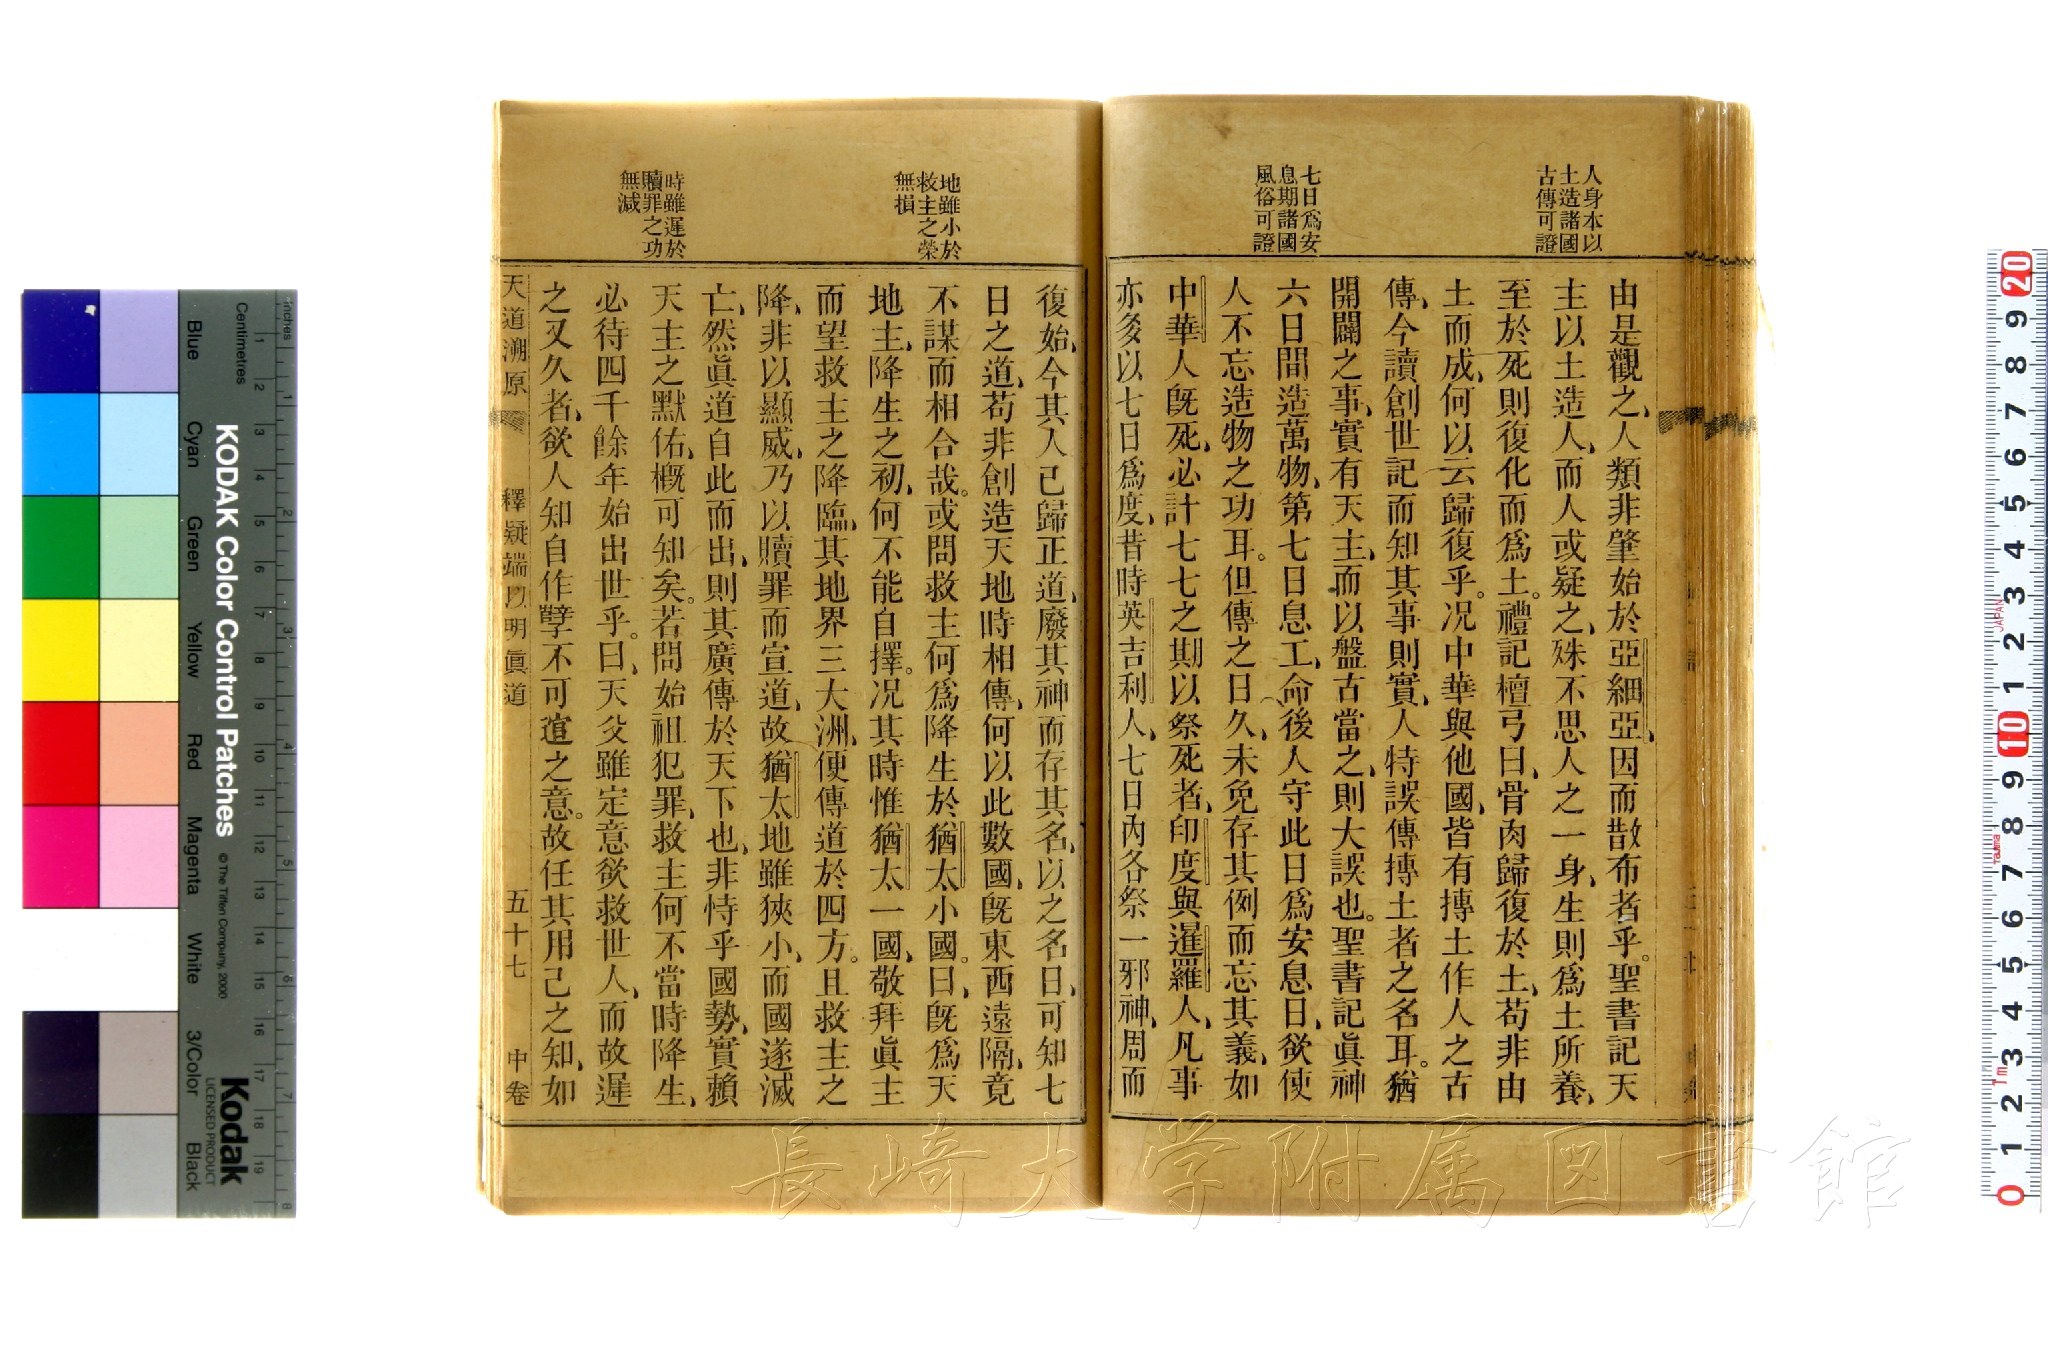 人身本以
土造諸國
古傳可證
七日爲安
息期諸國
風俗可證
由是觀之、人類非肇始於亞細亞、因而散布者乎。聖書記天
主以土造人、而人或疑之、殊不思人之一身、生則爲土所養、
至於死則復化而爲土。禮記檀弓曰、骨肉歸復於土、苟非由
土而成、何以云歸復乎。况中華與他國、皆有摶土作人之古
傳、今讀創世記而知其事則實、人特誤傳摶土者之名耳。猶
開闢之事、實有天主、而以盤古當之、則大誤也。聖書記眞神
六日間造萬物、第七日息工、命後人守此日爲安息日、欲使
人不忘造物之功耳。但傳之日久、未免存其例而忘其義、如
中華人旣死、必計七七之期以祭死者、印度與暹羅人、凡事
亦多以七日爲度、昔時英吉利人、七日內各祭一邪神、周而
地雖小於
救主之榮
無損
時雖遲於
贖罪之功
無減
復始、今其人已歸正道、廢其神而存其名、以之名日、可知七
日之道、苟非創造天地時相傳、何以此數國、旣東西遠隔、竟
不謀而相合哉。或問救主何爲降生於猶太小國。曰、旣爲天
地主、降生之初、何不能自擇。况其時惟猶太一國、敬拜眞主
而望救主之降臨、其地界三大洲、便傳道於四方。且救主之
降、非以顯威、乃以贖罪而宣道、故猶太地雖狹小、而國遂滅
亡、然眞道自此而出、則其廣傳於天下也、非恃乎國勢、實賴
天主之默佑、槪可知矣。若問始祖犯罪、救主何不當時降生、
必待四千餘年始出世乎。曰、天父雖定意欲救世人、而故遲
之又久者、欲人知自作孽不可逭之意。故任其用己之知、如
天道溯原
釋疑端以明眞道
五十七
中卷
KODAK Color Control Patches
© The Tiffen Company, 2000
Kodak
LICENSED PRODUCT
Inches
Centimetres
Blue
Cyan
Green
Yellow
Red
Magenta
White
3/Color
Black
長崎大学附属図書館